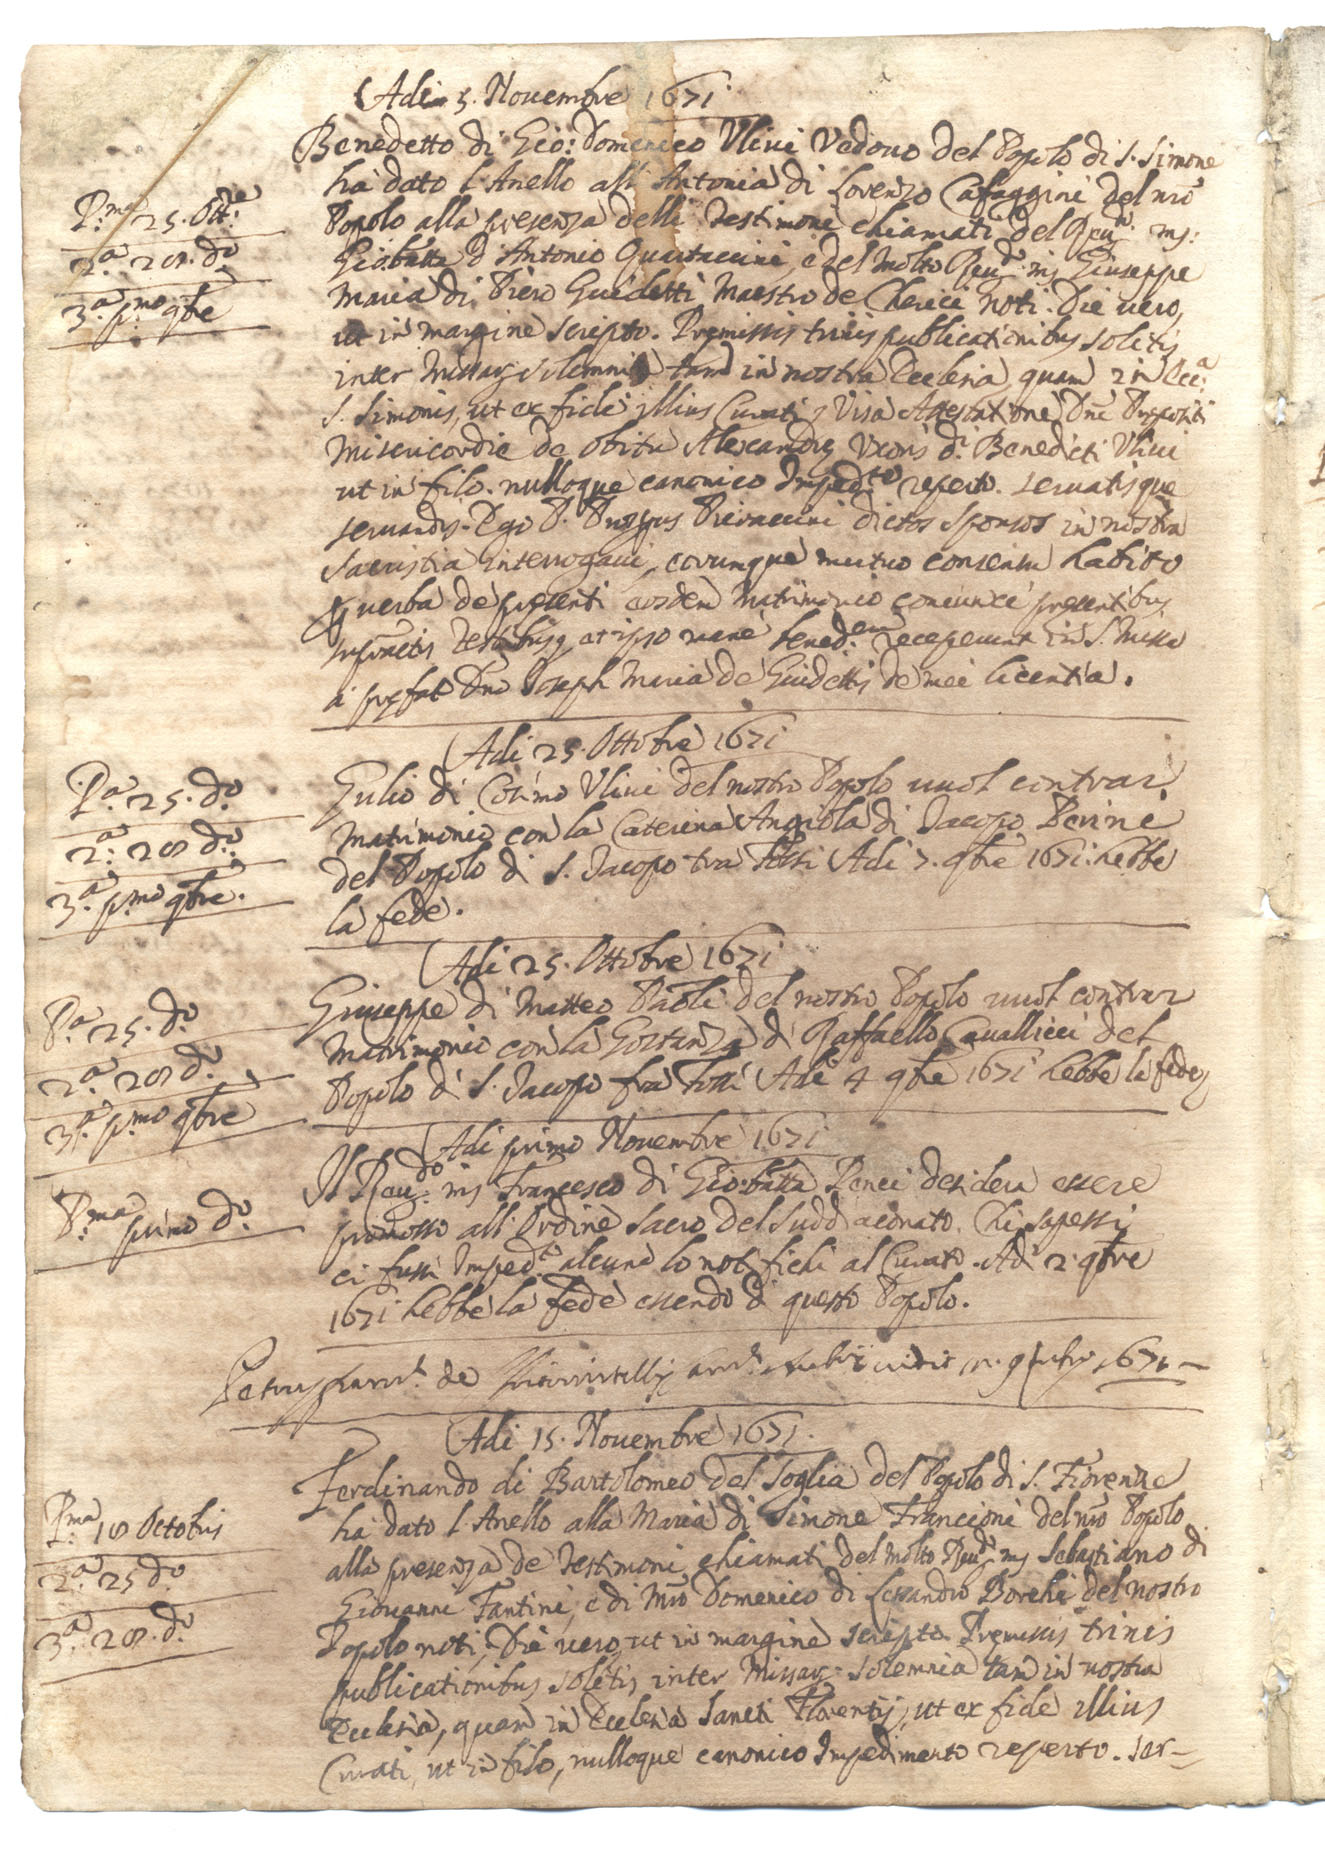 Adi 5. Novembre 1671
Benedetto di Gio: Domenico Ulivi Vedovo del Popolo di S. Simone
ha dato l'Anello all' Antonia di Lorenzo Cafaggini del nro
P.ma 25. Ott.e
Popolo alla presenza delli Testimone chiamati del Reu.do ms:
2.a 28. do
Giobatta d'Antonio Quartaccini, e del Molto Reu.do ms Giuseppe
3.a p.mo 9bre
Maria di Piero Guidetti Maestro de Cherici noti. Die vero,
ut in margine scripto. Premissis trinis publicationibus solitis
inter Missar. solemnia tam in nostra Ecclesia, quam in Ecc.a
S. Simonis, ut ex fide illius Curati, Visa Atestatione Dni Prepositi
Misericordie de obitu Alexandre Uxoris di Benedicti Ulivi
ut in filo. nulloque canonico Imped.to reperto. servatisque
servandis. Ego P. Pieraccini dictos sponsos in nostra
Sacristia interrogavi, eorumque mutuo consensu habito
verba de presenti eosdem Matrimonio coniunxi presentibus
Testibus, et ipso mane bened.em receperunt in S. Missa
a prefat Dno Joseph Maria de Guidettis de mei licentia.
Adi 25. Ottobre 1671
P.a 25. do
Giulio di Cosimo Ulivi del nostro Popolo vuol contrar
2.a 28 do
Matrimonio con la Caterina Angiola di Jacopo Perini
del Popolo di S. Jacopo tra Fossi Adi 7. 9bre 1671. hebbe
3.a p.mo 9bre.
la fede.
Adi 25. Ottobre 1671
Giuseppe di Matteo Paoli del nostro Popolo vuol contrar
P.a 25. do
Matrimonio con la Gostanza di Raffaello Cavallicci del
2.a 28 do
Popolo di S. Jacopo fra Fossi Adi 4 9bre 1671 hebbe la fede
3.a p.mo 9bre
Adi primo Novembre 1671
Il Reu.do ms Francesco di Gio:batta Penci desidera essere
P.ma primo do.
promosso all' Ordine Sacro del Suddiaconato. Chi sapessi
ci fussi Imped.to alcuno lo notifichi al Curato. Adi 2 9bre
1671 hebbe la fede essendo di questo Popolo.
de 1671
Adi 15. Novembre 1671.
Ferdinando di Bartolomeo del Soglia del Popolo di S. Fiorenze
P.ma 18 Octobris
ha dato l'Anello alla Maria di Simone Francioni del nro Popolo
2.a 25 do
alla presenza de Testimoni chiamati del Molto Reu.do ms Sebastiano di
Giovanni Fantini, e di Mro Domenico di Lessandro Borchi del nostro
3.a 28. do
Popolo noti, Die vero, ut in margine scripto Premissis trinis
publicationibus solitis inter Missar. solemnia tam in nostra
Ecclesia, quam in Ecclesia Sancti Florentij, ut ex fide illius
Curati, ut in filo, nulloque canonico Impedimento reperto. ser-